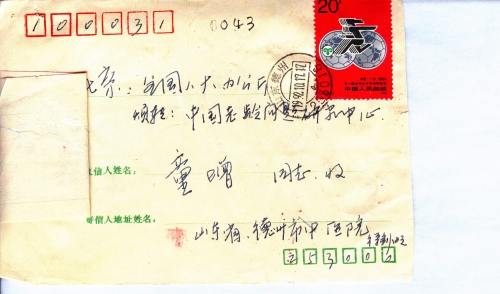 100031 0043
20分
中国人民邮政
京：全国人大办公厅
烦转：中国老龄问题研究中心
信人姓名： 童增 同志 收
寄信人地址姓名： 山东省德州市中医院
253000